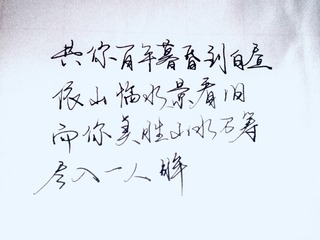 共你百年暮昏到白昼
依山傍水景看旧
而你美胜山水万筹
尽入一人眸